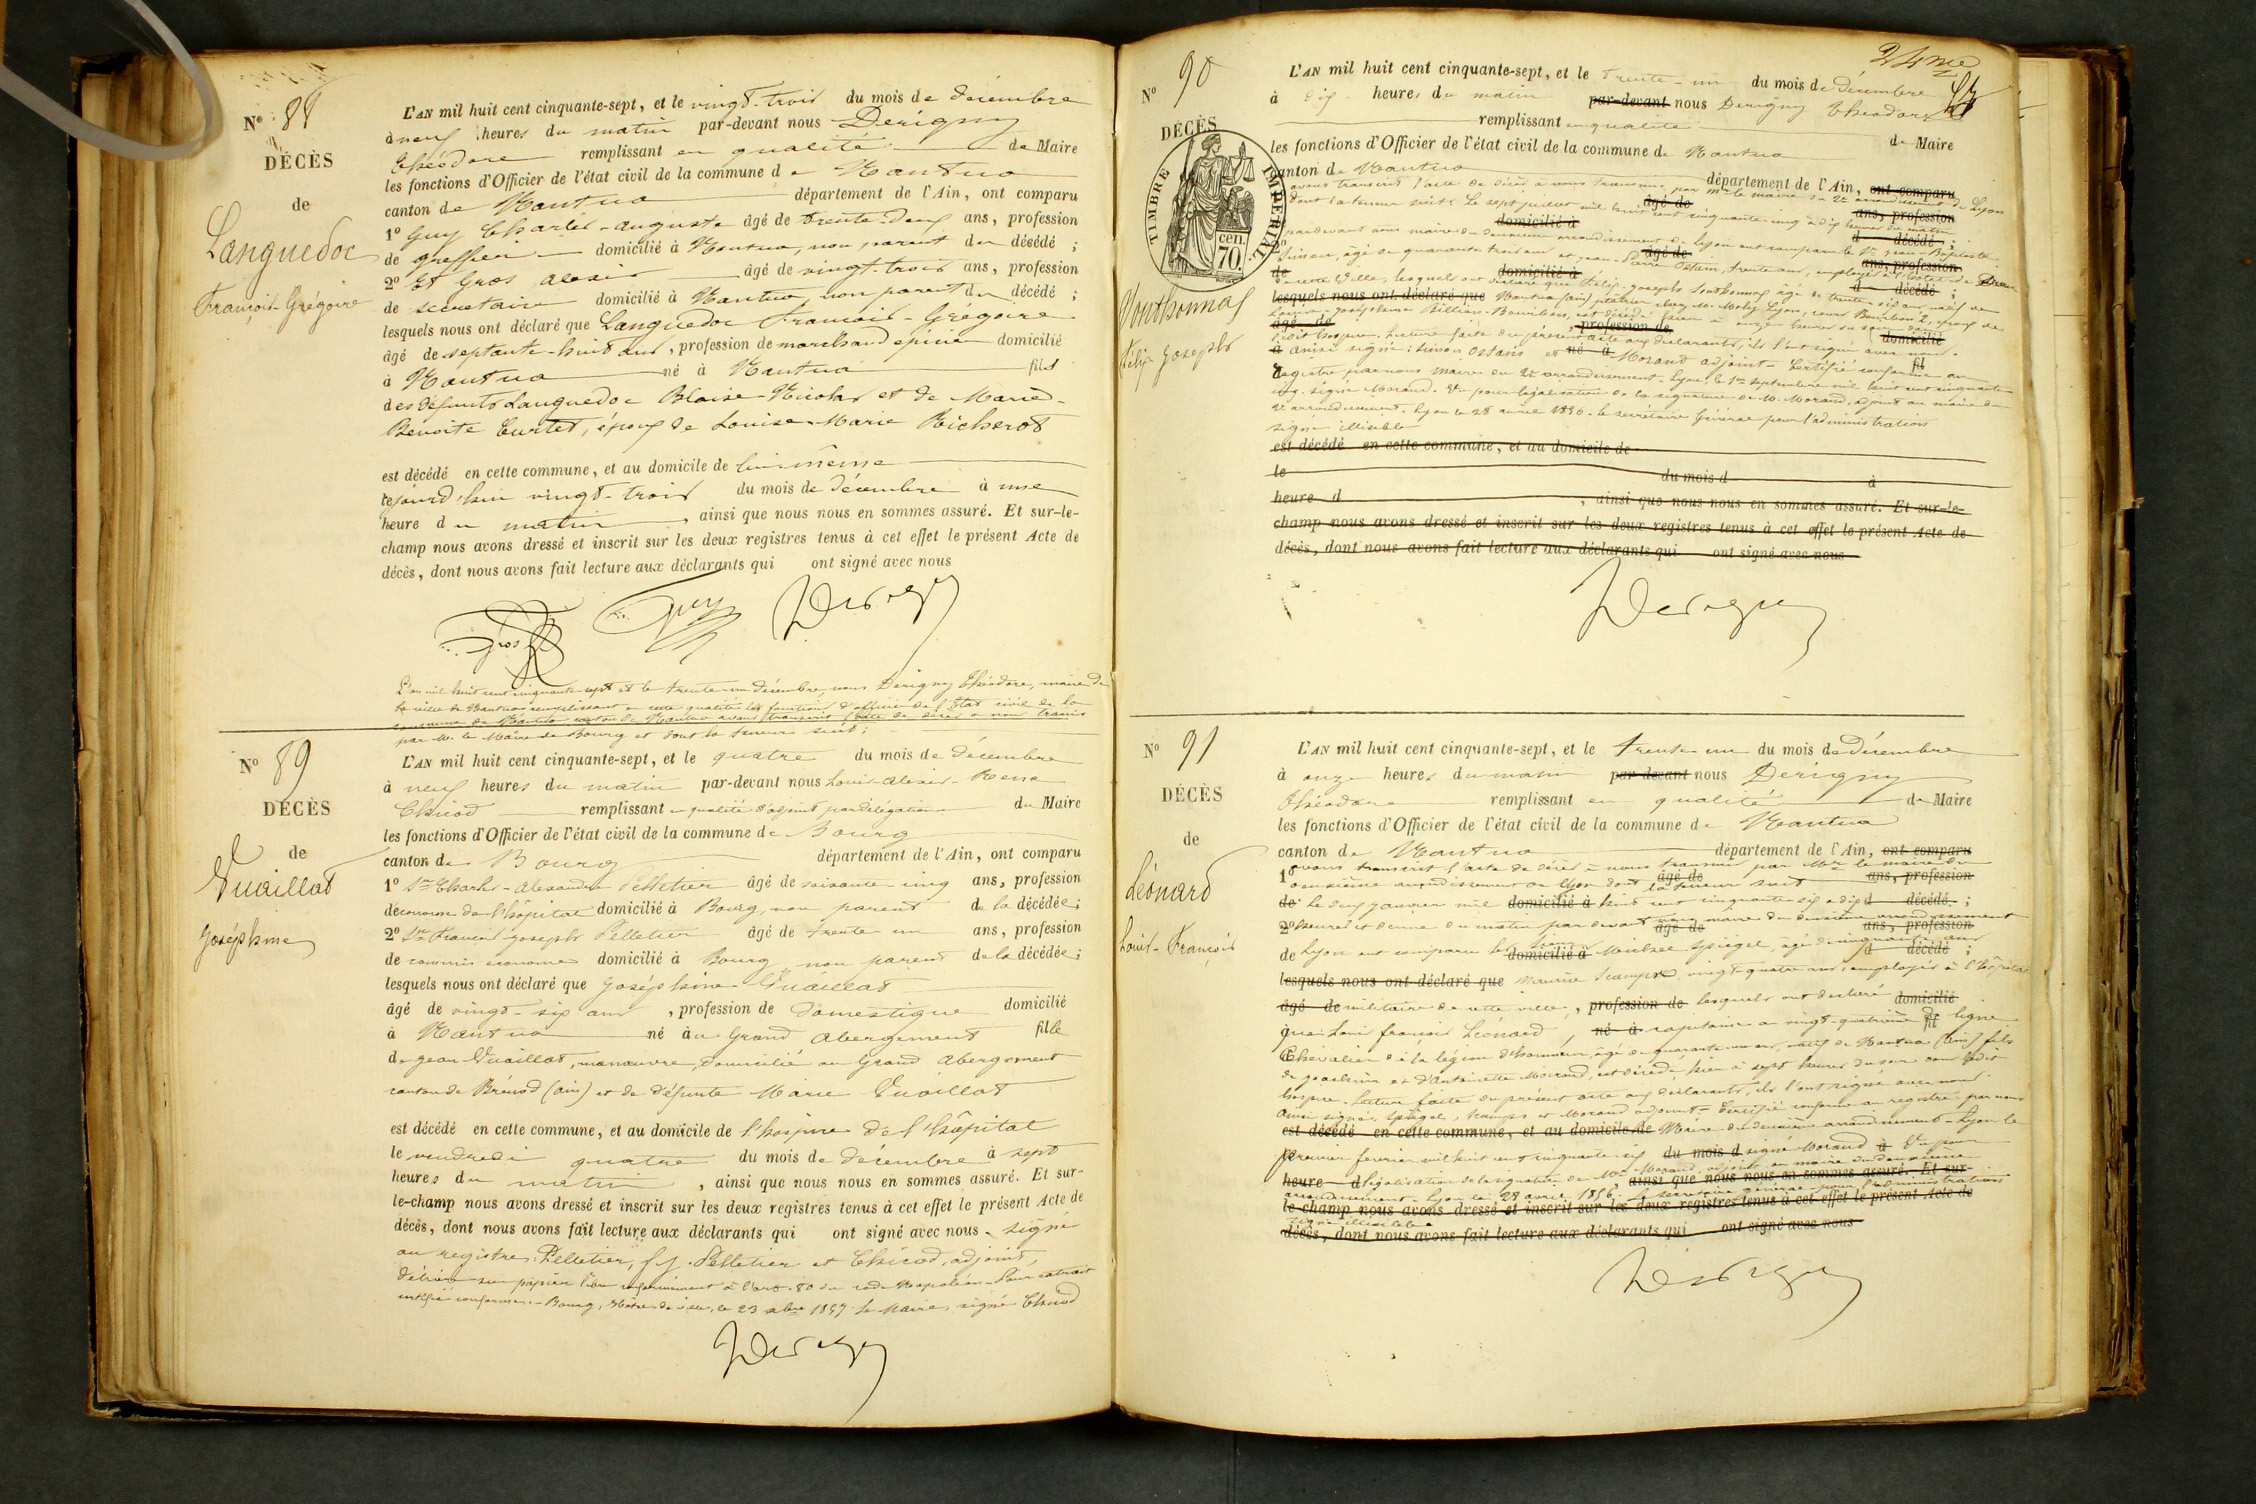 N° 88
DÉCÈS
de
Languedoc
François-Grégoire
L'AN mil huit cent cinquante-sept, et le vingt-trois du mois de décembre
à neuf heures du matin par-devant nous Derigny
Théodore remplissant en qualité de Maire
les fonctions d'Officier de l'état civil de la commune de Nantua
canton de Nantua département de l'Ain, ont comparu
1° Guy Charles-auguste âgé de trente-deux ans, profession
de greffier domicilié à Nantua, non parent du décédé ;
2° Et Gros alexis âgé de vingt-trois ans, profession
de secrétaire domicilié à Nantua, non parent du décédé ;
lesquels nous ont déclaré que Languedoc François-Grégoire
âgé de septante-huit ans, profession de marchand épicier domicilié
à Nantua né à Nantua fils
des défunts Languedoc Blaise-Nicolas et de Marie-
Benoite Curtet, époux de Louise-Marie Richerot
est décédé en cette commune, et au domicile de lui-même
cejourd'hui vingt-trois du mois de décembre à une
heure du matin, ainsi que nous nous en sommes assuré. Et sur-le-
champ nous avons dressé et inscrit sur les deux registres tenus à cet effet le présent Acte de
décès, dont nous avons fait lecture aux déclarants qui ont signé avec nous
Gros Guy Derigny
L'an mil huit cent cinquante-sept et le trente-un décembre, nous Derigny Théodore, maire de
la ville de Nantua remplissant en cette qualité les fonctions d'officier de l'Etat civil de la
commune de Nantua canton de Nantua avons transcrit l'acte de décès à nous transmis
par M. le Maire de Bourg et dont la teneur suit :
N° 89
DÉCÈS
de
Vuaillat
Joséphine
L'AN mil huit cent cinquante-sept, et le quatre du mois de décembre
à neuf heures du matin par-devant nous Louis-alexis-
Chicod remplissant en qualité d'adjoint par délégation du Maire
les fonctions d'Officier de l'état civil de la commune de Bourg
canton de Bourg département de l'Ain, ont comparu
1° Sr Charles-Alexandre Pelletier âgé de soixante cinq ans, profession
d'économe de l'hôpital domicilié à Bourg, non parent de la décédée ;
2° Sr François Joseph Pelletier âgé de trente un ans, profession
de commis économe domicilié à Bourg non parent de la décédée ;
lesquels nous ont déclaré que Joséphine Vuaillat
âgé de vingt-six ans, profession de domestique domicilié
à Nantua né au Grand abergement fille
de Jean Vuaillat, manœuvre, domicilié au Grand abergement
canton de Brénod (ain) et de défunte Marie Vuaillat
est décédé en cette commune, et au domicile de l'hospice de l'hôpital
le vendredi quatre du mois de décembre à sept
heures du matin, ainsi que nous nous en sommes assuré. Et sur-
le-champ nous avons dressé et inscrit sur les deux registres tenus à cet effet le présent Acte de
décès, dont nous avons fait lecture aux déclarants qui ont signé avec nous - signé
au registre Pelletier, f. j. Pelletier et Chicod, adjoint,
délivré sur papier libre conformément à l'art. 80 du code Napoléon - Pour extrait
certifié conforme. - Bourg, Hôtel de ville, le 23 1857 le Maire, signé Chicod
Derigny
24me
N° 90
DÉCÈS
TIMBRE IMPÉRIAL
70 cen.
Félix Joseph
L'AN mil huit cent cinquante-sept, et le trente-un du mois de décembre
à dix heures du matin par-devant nous Derigny Théodore
remplissant en qualité de Maire
les fonctions d'Officier de l'état civil de la commune de Nantua
canton de Nantua département de l'Ain, ont comparu
avons transcrit l'acte de décès à nous transmis par Mr le maire du 2e arrondissement de Lyon
dont la teneur suit : Le sept juillet mil huit cent cinquante-cinq à dix heures du matin
pardevant nous maire du deuxième arrondissement de Lyon ont comparu Jean-Baptiste
âgé de quarante trois ans et Jean-Pierre Ostain, trente ans, employés à l'hôtel-Dieu
de cette Ville, lesquels ont déclaré que Félix-Joseph âgé de trente-six ans natif de
lesquels nous ont déclaré que Nantua (ain)
époux de
est décédé hier à onze heures du soir dans
Lecture faite du présent acte aux déclarants, ils l'ont signé avec nous.
ainsi signé : Ostain et Morand adjoint - Certifié conforme au
registre par nous Maire du 2e arrondissement - Lyon, le 1er septembre mil huit cent cinquante
cinq. signé Morand. Vu pour légalisation de la signature de M. Morand, adjoint au maire du
2e arrondissement. Lyon le 28 avril 1856. le secrétaire Général pour l'administration
signé illisible
est décédé en cette commune, et au domicile de
le du mois d à
heure d , ainsi que nous nous en sommes assuré. Et sur-le-
champ nous avons dressé et inscrit sur les deux registres tenus à cet effet le présent Acte de
décès, dont nous avons fait lecture aux déclarants qui ont signé avec nous
Derigny
N° 91
DÉCÈS
de
Léonard
Louis-François
L'AN mil huit cent cinquante-sept, et le trente-un du mois de Décembre
à onze heures du matin par-devant nous Derigny
Théodore remplissant en qualité de Maire
les fonctions d'Officier de l'état civil de la commune de Nantua
canton de Nantua département de l'Ain, ont comparu
avons transcrit l'acte de décès à nous transmis par Mr le maire du
deuxième arrondissement de Lyon dont la teneur suit
Le deux janvier mil huit cent cinquante-six à dix
heures et demie du matin par devant nous maire du deuxième arrondissement
de Lyon ont comparu les sieurs Michael Spiegel, âgé de cinquante ans
lesquels nous ont déclaré que Maurice vingt-quatre ans, employés à l'hôpital
militaire de cette ville, lesquels ont déclaré
que Louis françois Léonard, capitaine au vingt-quatrième de ligne
Chevalier de la légion d'honneur, âgé de quarante ans, natif de Nantua (ain) fils
de Joachim et d'Antoinette Morand, est décédé hier à sept heures du soir dans ledit
hospice. Lecture faite du présent acte aux déclarants, ils l'ont signé avec nous.
Ainsi signé : Spiegel, et Morand adjoint - Certifié conforme au registre par nous
est décédé en cette commune, et au domicile de Maire du deuxième arrondissement - Lyon le
premier février mil huit cent cinquante-six signé Morand Vu pour
légalisation de la signature de Mr Morand, adjoint au maire du deuxième
arrondissement. Lyon le 28 avril 1856. Le secrétaire général pour l'administration
le-champ nous avons dressé et inscrit sur les deux registres tenus à cet effet le présent Acte de
signé illisible
décès, dont nous avons fait lecture aux déclarants qui ont signé avec nous
Derigny